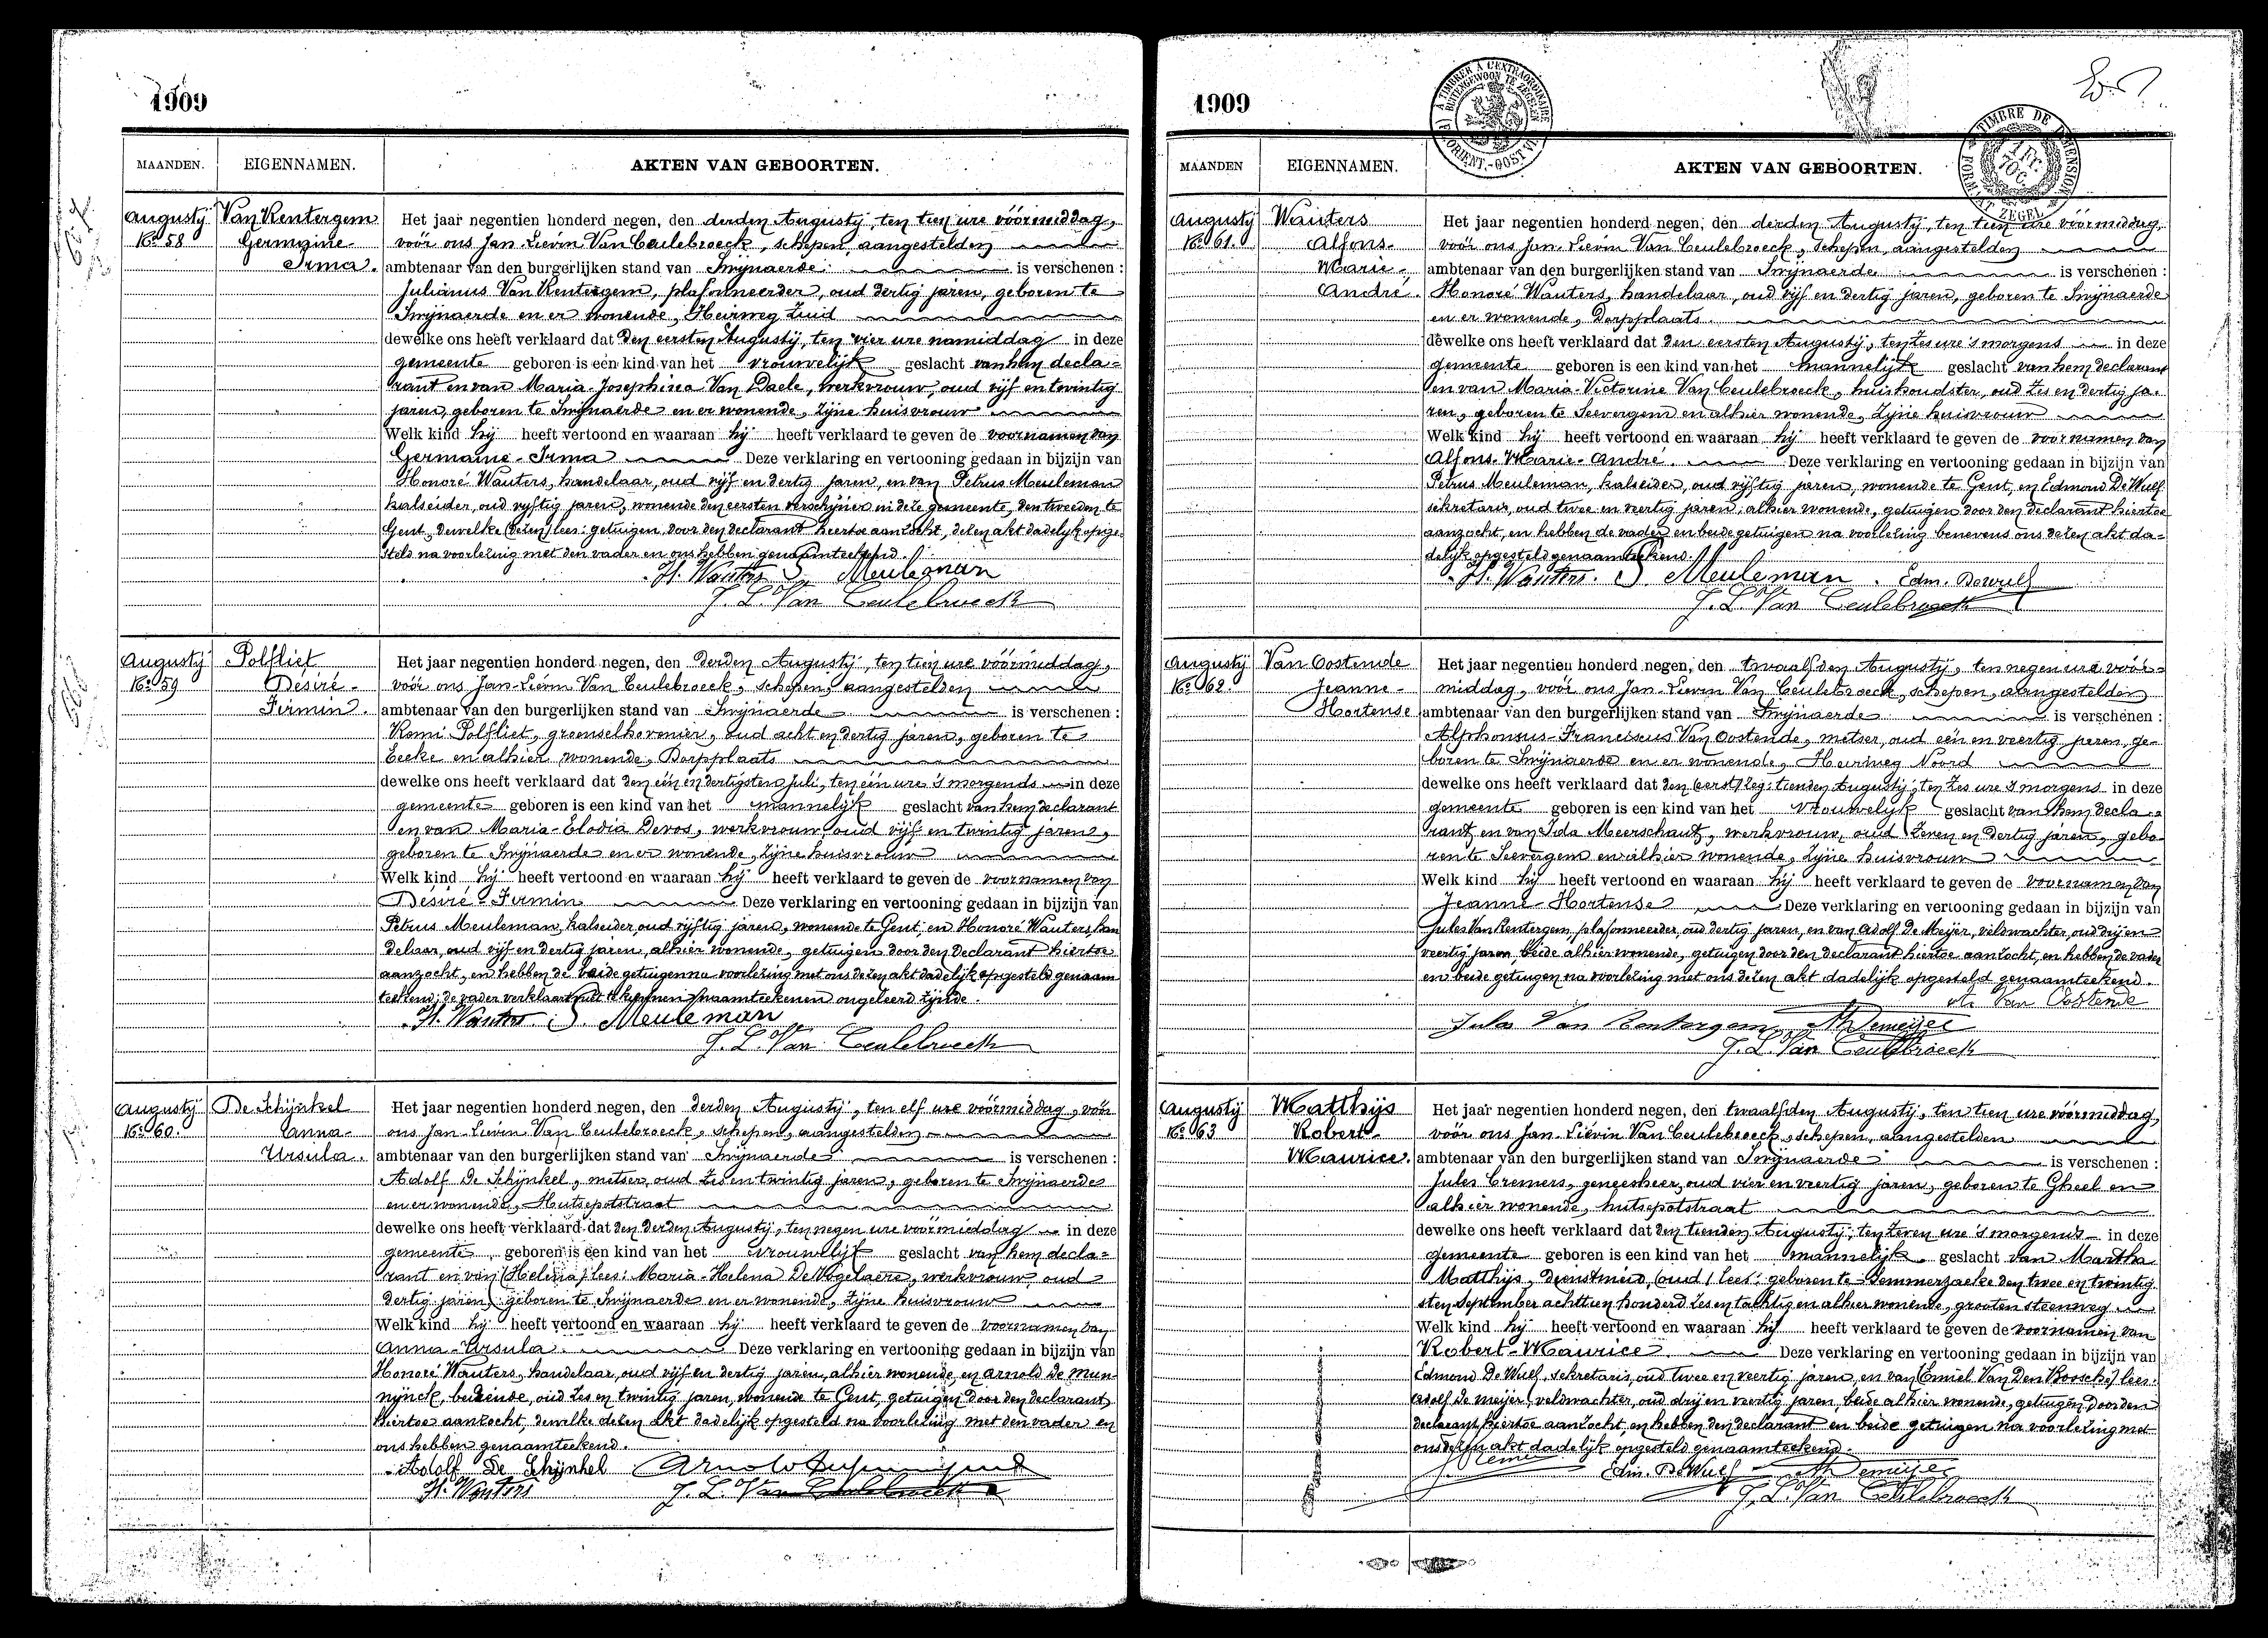 1909
MAANDEN. EIGENNAMEN. AKTEN VAN GEBOORTEN.
Augustij Van Rentergem
No 58 Germaine-
Irma.
Het jaar negentien honderd negen, den derden Augustij, ten tien ure vóórmiddag,
voór ons Jan-Lievin Van Ceulebroeck, schepen, aangestelden
ambtenaar van den burgerlijken stand van Swijnaerde is verschenen :
Julianus Van Rentergem, plafonneerder, oud dertig jaren, geboren te
Swijnaerde en er wonende, Heirweg Zuid
dewelke ons heeft verklaard dat den eersten Augustij, ten vier ure namiddag in deze
gemeente geboren is een kind van het vrouwelijk geslacht van hem decla-
rant en van Maria-Josephina Van Daele, werkvrouw, oud vijf en twintig
jaren, geboren te Swijnaerde en er wonende, zijne huisvrouw
Welk kind hij heeft vertoond en waaraan hij heeft verklaard te geven de voornamen van
Germaine-Irma Deze verklaring en vertooning gedaan in bijzijn van
Honoré Wauters, handelaar, oud vijf en dertig jaren, en van Petrus Meuleman
kalseider, oud vijftig jaren, wonende den eersten verschijner in deze gemeente, den tweeden te
Gent, dewelke (dezen) lees: getuigen, door den declarant hiertoe aanzocht, dezen akt dadelijk opge-
steld na voorlezing met den vader en ons hebben genaamteekend.
H. Wauters P. Meuleman
J. L. Van Ceulebroeck
Augustij Polfliet
No 59 Désiré-
Firmin.
Het jaar negentien honderd negen, den derden Augustij, ten tien ure vóórmiddag,
voór ons Jan-Lievin Van Ceulebroeck, schepen, aangestelden
ambtenaar van den burgerlijken stand van Swijnaerde is verschenen :
Remi Polfliet, groenselhovenier, oud acht en dertig jaren, geboren te
Eecke en alhier wonende, Dorpplaats
dewelke ons heeft verklaard dat den één en dertigsten Juli, ten één ure 's morgends in deze
gemeente geboren is een kind van het mannelijk geslacht van hem declarant
en van Maria-Elodia Devos, werkvrouw, oud vijf en twintig jaren,
geboren te Swijnaerde en er wonende, zijne huisvrouw
Welk kind hij heeft vertoond en waaraan hij heeft verklaard te geven de voornamen van
Désiré-Firmin Deze verklaring en vertooning gedaan in bijzijn van
Petrus Meuleman, kalseider, oud vijftig jaren, wonende te Gent, en Honoré Wauters, han-
delaar, oud vijf en dertig jaren, alhier wonende, getuigen door den declarant hiertoe
aanzocht, en hebben de beide getuigen na voorlezing met ons dezen akt dadelijk opgesteld genaam-
teekend; de vader verklaart niet te kunnen naamteekenen ongeleerd zijnde.
H. Wauters P. Meuleman
J. L. Van Ceulebroeck
Augustij De Schijnkel
No 60. Anna-
Ursula.
Het jaar negentien honderd negen, den derden Augustij, ten elf ure vóórmiddag, vóór
ons Jan-Lievin Van Ceulebroeck, schepen, aangestelden
ambtenaar van den burgerlijken stand van Swijnaerde is verschenen :
Adolf De Schijnkel, metser, oud zes en twintig jaren, geboren te Swijnaerde
en er wonende, Hutsepotstraat
dewelke ons heeft verklaard dat den derden Augustij, ten negen ure voormiddag in deze
gemeente geboren is een kind van het vrouwelijk geslacht van hem decla-
rant en van (Helena) lees: Maria-Helena De Vogelaere, werkvrouw, oud
dertig jaren, geboren te Swijnaerde en er wonende, zijne huisvrouw
Welk kind hij heeft vertoond en waaraan hij heeft verklaard te geven de voornamen van
Anna-Ursula. Deze verklaring en vertooning gedaan in bijzijn van
Honoré Wauters, handelaar, oud vijf en dertig jaren, alhier wonende, en Arnold De Mun-
nijnck, bediende, oud zes en twintig jaren, wonende te Gent, getuigen door den declarant
hiertoe aanzocht, dewelke dezen akt dadelijk opgesteld na voorlezing met den vader en
ons hebben genaamteekend.
Adolf De Schijnkel Arnold
H. Wauters J. L. Van Ceulebroeck
1909
MAANDEN EIGENNAMEN. AKTEN VAN GEBOORTEN.
Augustij Wauters
No 61. Alfons-
Marie-
André.
Het jaar negentien honderd negen, den derden Augustij, ten tien ure vóórmiddag,
voór ons Jan-Lievin Van Ceulebroeck, schepen, aangestelden
ambtenaar van den burgerlijken stand van Swijnaerde is verschenen :
Honoré Wauters, handelaar, oud vijf en dertig jaren, geboren te Swijnaerde
en er wonende, Dorpplaats.
dewelke ons heeft verklaard dat den eersten Augustij, ten zes ure 's morgens in deze
gemeente geboren is een kind van het mannelijk geslacht van hem declarant
en van Maria-Victorine Van Ceulebroeck, huishoudster, oud zes en dertig ja-
ren, geboren te Seevergem en alhier wonende, zijne huisvrouw
Welk kind hij heeft vertoond en waaraan hij heeft verklaard te geven de voornamen van
Alfons-Marie-André. Deze verklaring en vertooning gedaan in bijzijn van
Petrus Meuleman, kalseider, oud vijftig jaren, wonende te Gent, en Edmond De Wulf
sekretaris, oud twee en veertig jaren, alhier wonende, getuigen door den declarant hiertoe
aangezocht, en hebben de vader en beide getuigen na voorlezing benevens ons dezen akt da-
delijk opgesteld genaamteekend.
H. Wauters. P. Meuleman. Edm. Dewulf
J. L. Van Ceulebroeck
Augustij Van Oostende
No 62. Jeanne-
Hortense
Het jaar negentien honderd negen, den twaalfden Augustij, ten negen ure voór-
middag, voór ons Jan-Lievin Van Ceulebroeck, schepen, aangestelden
ambtenaar van den burgerlijken stand van Swijnaerde is verschenen :
Alphonsus-Franciscus Van Oostende, metser, oud één en veertig jaren, ge-
boren te Swijnaerde en er wonende, Heirweg Noord
dewelke ons heeft verklaard dat den (eerst) leg: tienden Augustij, ten zes ure 's morgens in deze
gemeente geboren is een kind van het vrouwelijk geslacht van hem decla-
rant en van Ida Meerschaut, werkvrouw, oud zeven en dertig jaren, gebo-
ren te Seevergem en alhier wonende, zijne huisvrouw
Welk kind hij heeft vertoond en waaraan hij heeft verklaard te geven de voornamen van
Jeanne-Hortense Deze verklaring en vertooning gedaan in bijzijn van
Jules Van Rentergem, plafonneerder, oud dertig jaren, en van Adolf De Meijer, veldwachter, oud drij en
veertig jaren, beide alhier wonende, getuigen door den declarant hiertoe aanzocht, en hebben de vader
en beide getuigen na voorlezing met ons dezen akt dadelijk opgesteld genaamteekend.
Van Oostende
Jules Van Rentergem A Demeijer
J. L. Van Ceulebroeck
Augustij Matthijs
No 63 Robert-
Maurice.
Het jaar negentien honderd negen, den twaalfden Augustij, ten tien ure vóórmiddag,
voór ons Jan-Liévin Van Ceulebroeck, schepen, aangestelden
ambtenaar van den burgerlijken stand van Swijnaerde is verschenen :
Jules Cremers, geneesheer, oud vier en veertig jaren, geboren te Gheel en
alhier wonende, hutsepotstraat
dewelke ons heeft verklaard dat den tienden Augustij, ten zeven ure 's morgends in deze
gemeente geboren is een kind van het mannelijk geslacht van Martha
Matthijs, dienstmeid, (oud) lees: geboren te Semmerzaeke den twee en twintig-
sten September achttien honderd zes en tachtig en alhier wonende, grooten steenweg
Welk kind hij heeft vertoond en waaraan hij heeft verklaard te geven de voornamen van
Robert-Maurice. Deze verklaring en vertooning gedaan in bijzijn van
Edmond De Wulf, sekretaris, oud twee en veertig jaren, en van (Emiel Van Den Bossche) lees:
Adolf De Meijer, veldwachter, oud drij en veertig jaren, beide alhier wonende, getuigen door den
declarant hiertoe aanzocht, en hebben den declarant en beide getuigen na voorlezing met
ons dezen akt dadelijk opgesteld genaamteekend.
Edm. DeWulf A Demeijer
J. L. Van Ceulebroeck